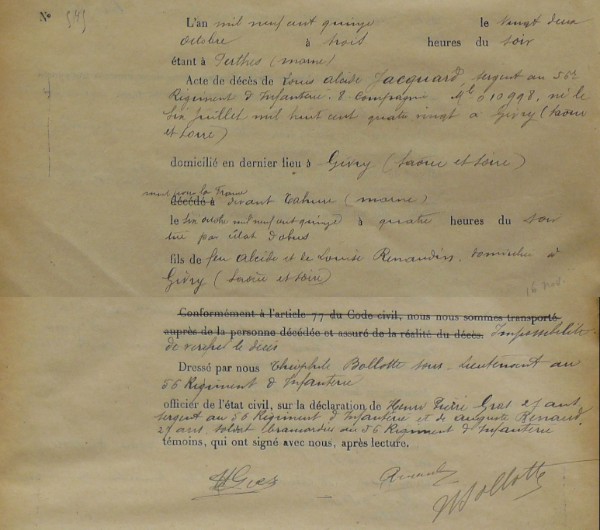 N° 545
L'an mil neuf cent quinze le vingt deux
octobre à trois heures du soir
étant à Perthes (marne)
Acte de décès de Louis Jacquard, sergent au 56e
Régiment d'Infanterie. 8 Compagnie. Mle 010998, né le
six juillet mil huit cent quatre vingt à Givry (Saone
et Loire)
domicilié en dernier lieu à Givry (Saone et Loire)
mort pour la France
décédé à devant Tahure (marne)
le six octobre mil neuf cent quinze à quatre heures du soir
tué par éclat d'obus
fils de feu Alcide et de Louise Renaudin, domicilié à
Givry (Saone et Loire)
16 nov.
Conformément à l'article 77 du Code civil, nous nous sommes transporté
auprès de la personne décédée et assuré de la réalité du décès. Impossibilité
de vérifier le décès
Dressé par nous Théophile Bollotte sous-lieutenant au
56 Régiment d'Infanterie
officier de l'état civil, sur la déclaration de Henri Pierre Gras 27 ans
sergent au 56 Régiment d'Infanterie et de Auguste Renaud,
27 ans soldat brancardier au 56 Régiment d'Infanterie
témoins, qui ont signé avec nous, après lecture.
HGras Renaud Bollotte